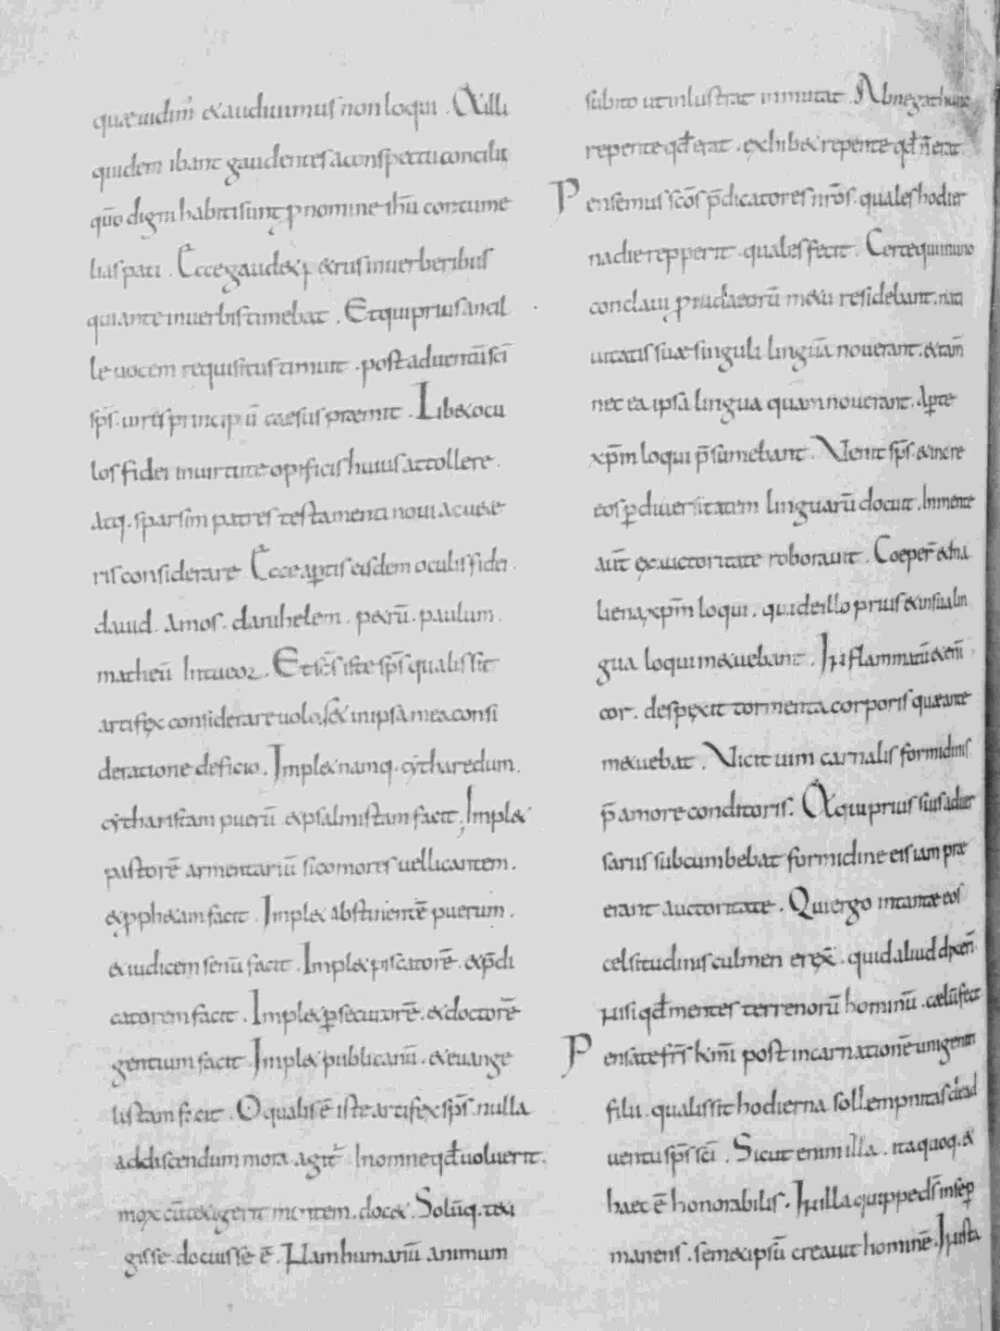 quæ uidim̄ & audiuimus non loqui . At illi
quidem ibant gaudentes a conspectu concilii
qūo digni habiti sunt ꝓ nomine ih̄u contume
lias pati . Ecce gaud& p&rus in uerberibus
qui ante in uerbis timebat . Et qui prius ancil
le uocem requisitus timuit . post aduentū sc̄i
sp̄s . uires principū caesus praemit . Lib& ocu
los fidei in uirtute opificis huius attollere .
Atq. sparsim patres testamenti noui ac u&e
ris considerare Ecce aꝑtis eisdem oculis fidei .
dauid . Amos . danihelem . p&rū . paulum
matheū Intueor . Et sc̄s iste sp̄s qualis sit
artifex considerare uolo . s& in ipsa mea consi
deratione deficio . Impl& namq. cytharedum .
cytharistam puerū & psalmistam facit . Impl&
pastorē armentariū sicomoros uellicantem .
& ꝓph&am facit . Impl& abstinentē puerum .
& iudicem senū facit . Impl& piscatorē . & p̄di
catorem facit . Impl& ꝑsecutorē . & doctorē
gentium facit . Impl& publicanū . & euange
listam facit . O qualis ē iste artifex sp̄s . nulla
addiscendum mora agit̄ . In omne qd̄ uoluerit .
mox cū t&igerit mentem . doc& . Solūq. t&i
gisse . docuisse ē . Nam humanū animum
subito ut inlustrat inmutat . Abnegat hunc
repente qd̄ erat . exhib& repente qd̄ n̄ erat
Pensemus sc̄os p̄dicatores nr̄os . quales hodier
na die repperit . quales fecit . Certe qui in uno
conclaui ꝓ iudaeorū m&u residebant . nati
uitatis suæ singuli linguā nouerant . & tam̄
nec ea ipsa lingua quam nouerant . aꝑte
xp̄m loqui p̄sumebant . Venit sp̄s . & in ore
eos ꝑ diuersitatem linguarū docuit . In mente
aut̄ ex auctoritate roborauit . Coeper̄ & alia
liena xp̄m loqui . qui de illo prius & in sua lin
gua loqui m&uebant . Inflammatū & eni̅
cor . despexit tormenta corporis quæ ante
m&uebat . Vicit uim carnalis formidinis
p̄ amore conditoris . At qui prius suis aduer
sariis subcumbebat formidine eis iam præ
erant auctoritate . Qui ergo in tantæ eos
celsitudinis culmen erex& . quid aliud dixeri̅
nisi qd̄ mentes terrenorū hominū . cælū fecit
Pensate fr̄s k̄mi post incarnationē unigeniti
filii . qualis sit hodierna sollempnitas de ad
uentu sp̄s sc̄i . Sicut enim illa . ita quoq. &
haec ē honorabilis . In illa quippe ds̄ in se ꝑ
manens . sem&ipsū creauit hominē . In ista